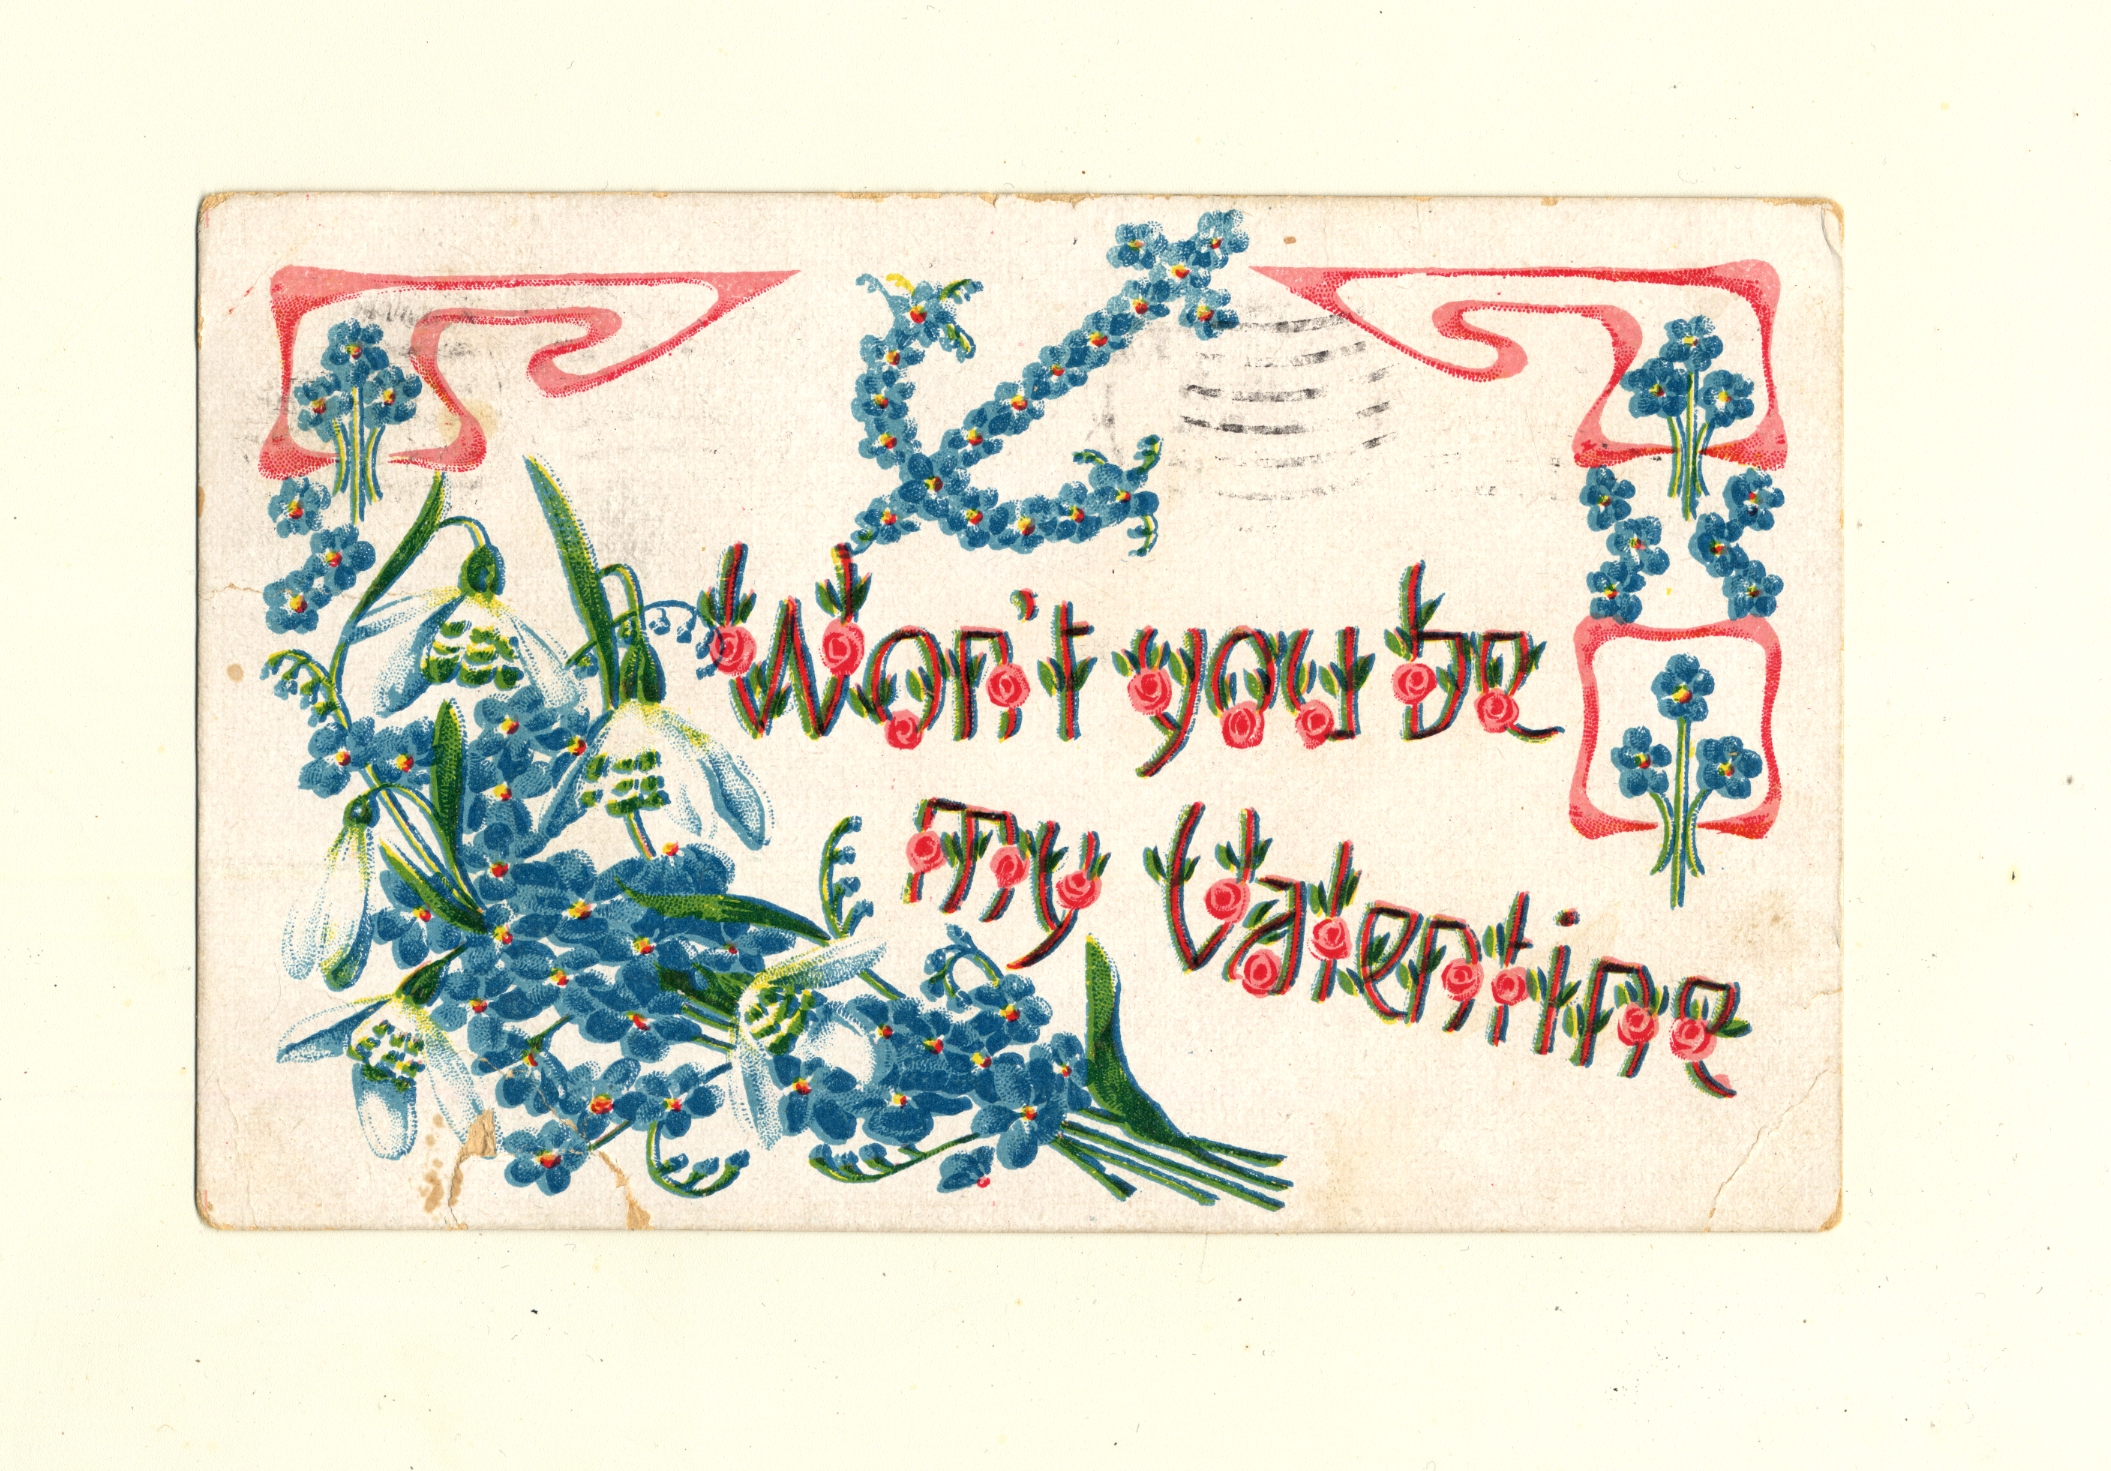 Won't you be
my Valentine